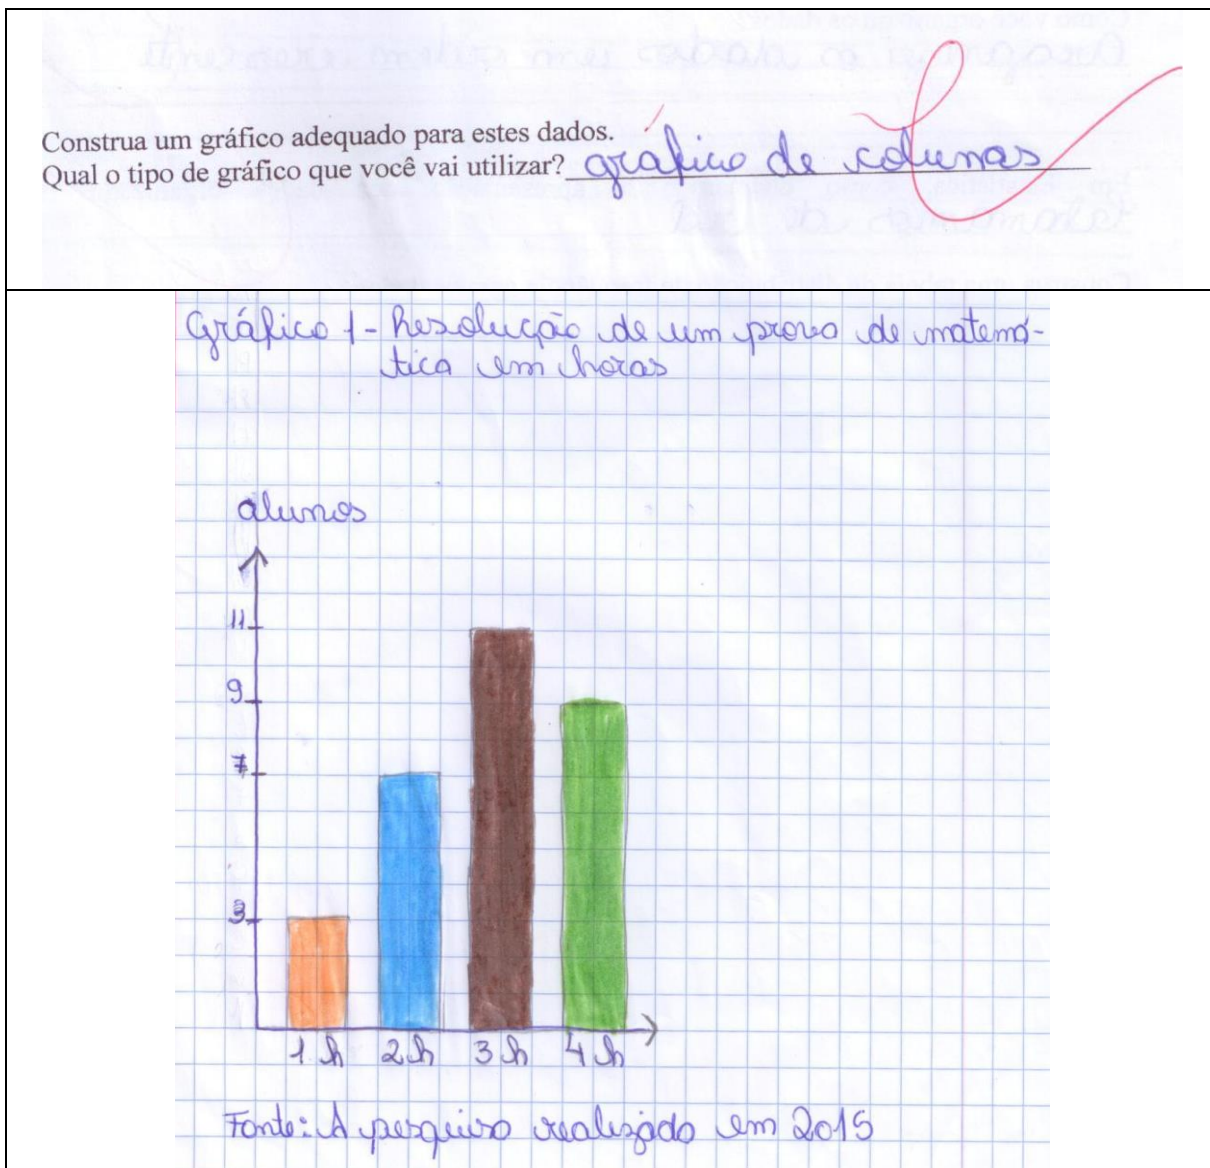 Construa um gráfico adequado para estes dados.
Qual o tipo de gráfico que você vai utilizar? grafico de colunas
Gráfico 1 - Resolução de um prova de matemá-
tica em horas
alunos
11
9
7
3
1 h 2 h 3 h 4 h
Fonte: A pesquisa realizada em 2015